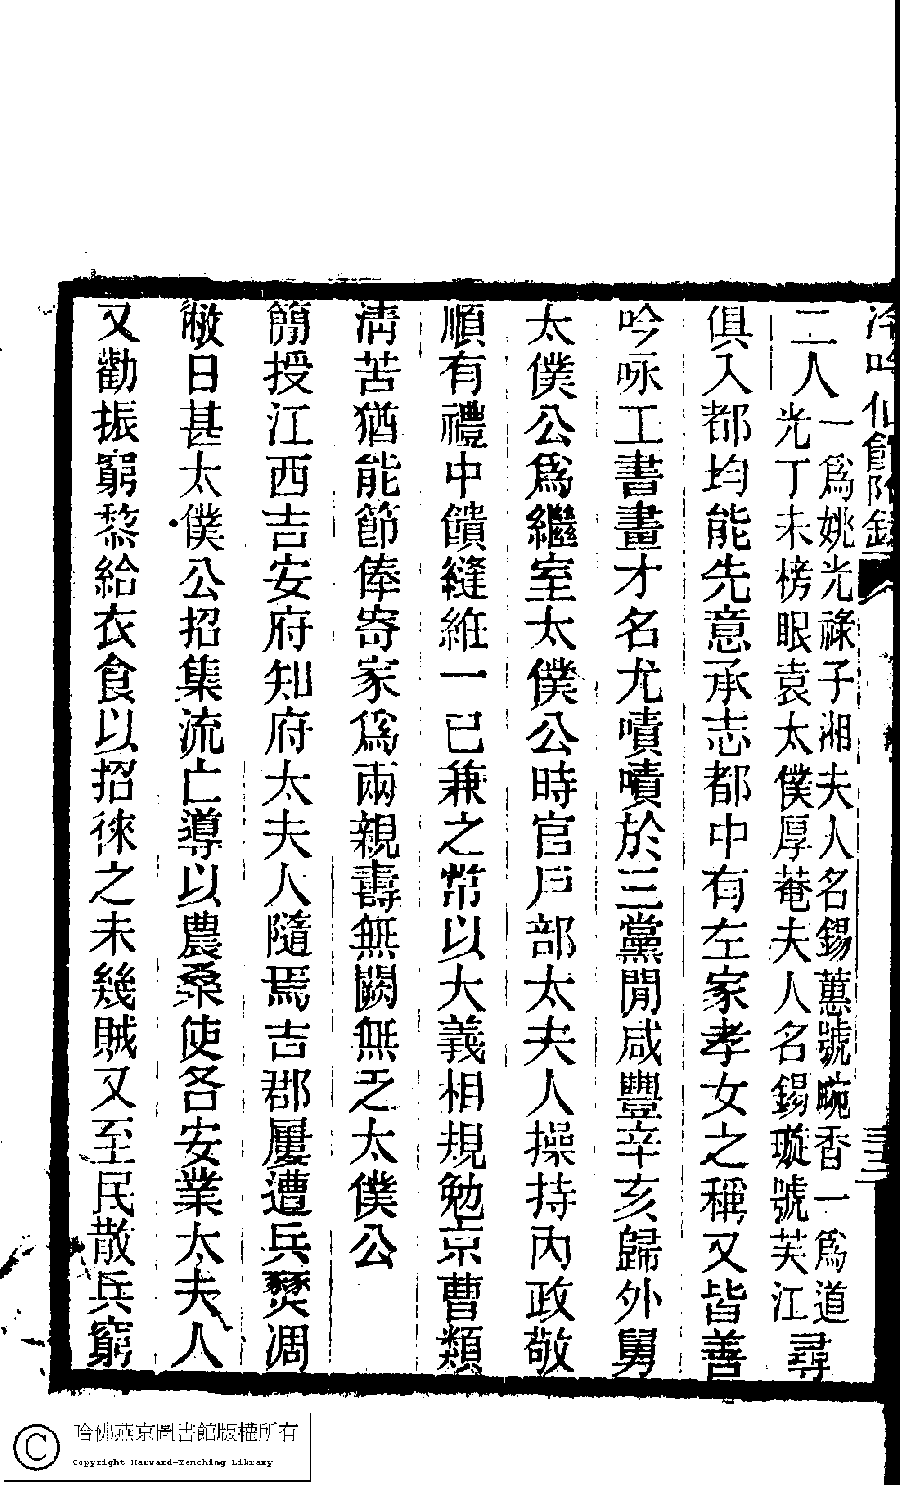 冷吟仙館附錄
二人一爲姚光祿子湘夫人名錫蕙號畹香一爲道
光丁未榜眼袁太僕厚菴夫人名錫璇號芙江尋
俱入都均能先意承志都中有左家孝女之稱又皆善
吟咏工書畫才名尤嘖嘖於三黨閒咸豐辛亥歸外舅
太僕公爲繼室太僕公時官戶部太夫人操持內政敬
順有禮中饋縫紝一已兼之常以大義相規勉京曹類
淸苦猶能節俸寄家爲兩親壽無闕無乏太僕公
簡授江西吉安府知府太夫人隨焉吉郡屢遭兵燹凋
敝日甚太僕公招集流亡導以農桑使各安業太夫人
又勸振窮黎給衣食以招徠之未幾賊又至民散兵窮
哈佛燕京圖書館版權所有
Copyright Harvard-Yenching Library